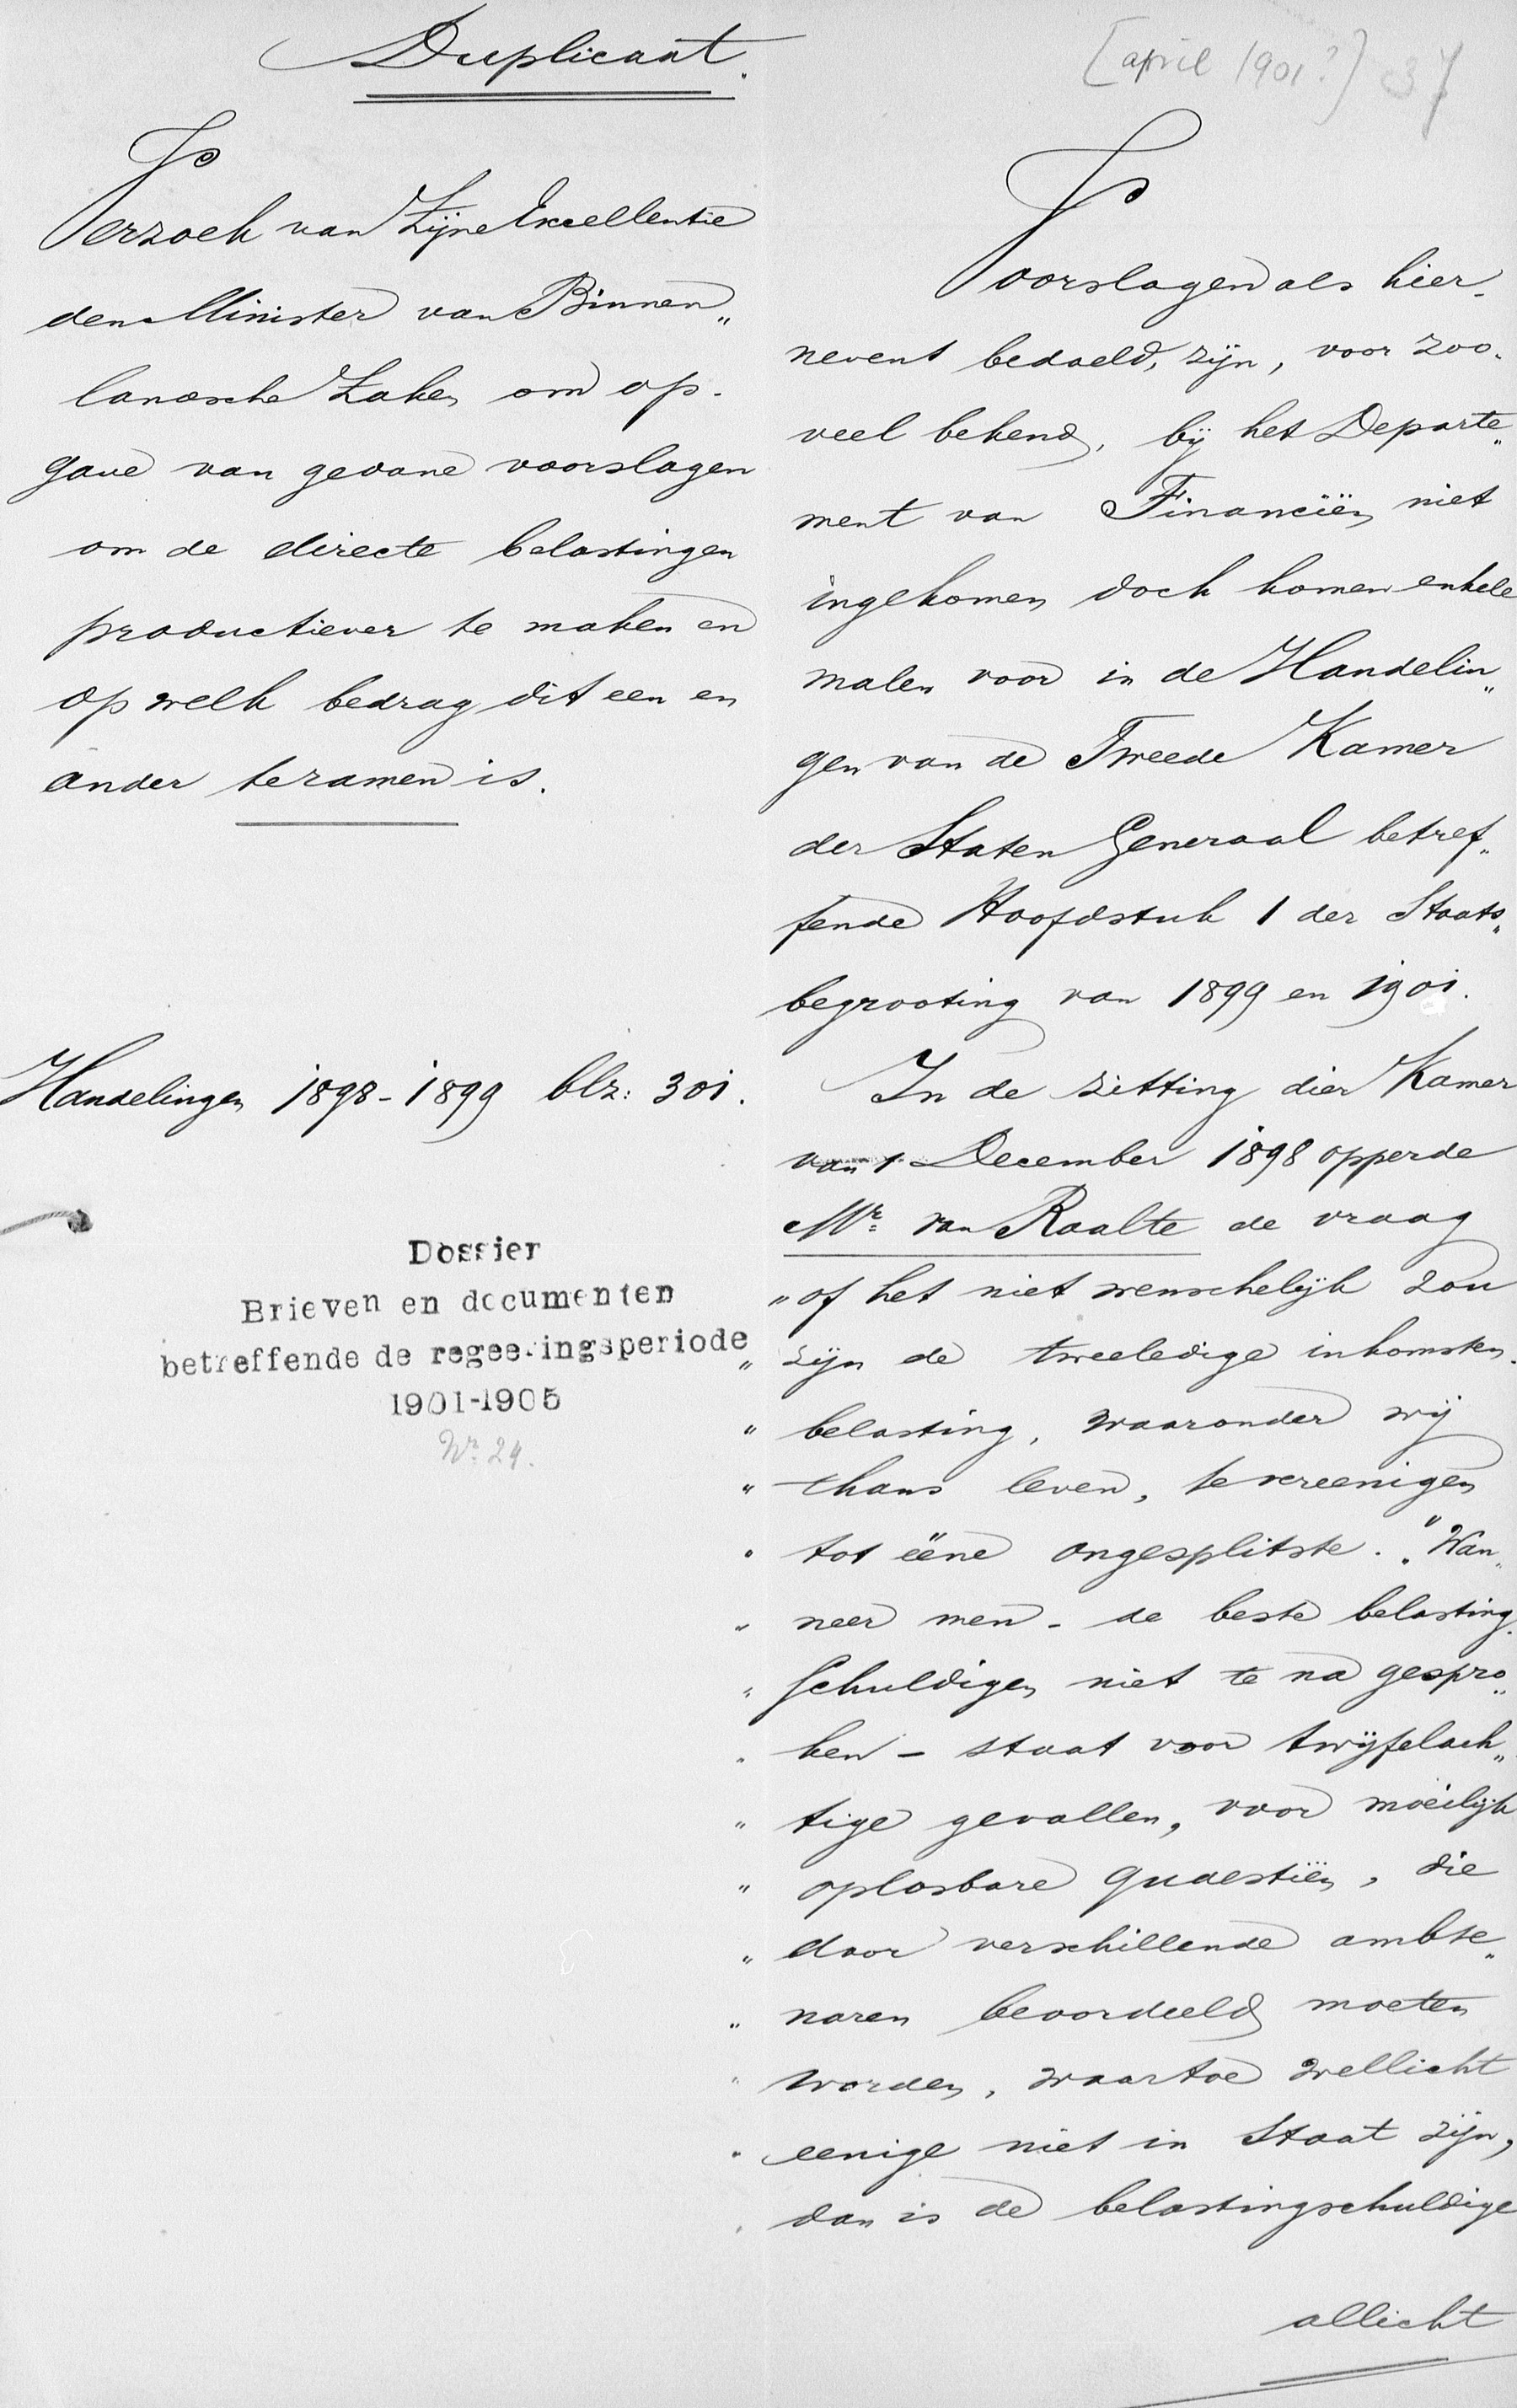 Duplicaat.
[april 1901?] 37
Verzoek van Zijne Excellentie
den Minister van Binnen„
landsche Zaken om op-
gave van gedane voorslagen
om de directe belastingen
productiever te maken en
op welk bedrag dit een en
ander te ramen is.
Handelingen 1898-1899 blz: 301.
Dossier
Brieven en documenten
betreffende de regeeringsperiode
1901-1905
Nr. 24.
Voorslagen als hier-
nevens bedoeld, zijn, voor zoo-
veel bekend, bij het Departe„
ment van Financiën niet
ingekomen doch komen enkele
malen voor in de Handelin„
gen van de Tweede Kamer
der Staten Generaal betref„
fende Hoofdstuk 1 der Staats„
begrooting van 1899 en 1901.
In de zitting dier Kamer
van 1 December 1898 opperde
Mr. van Raalte de vraag
„of het niet wenschelijk zou
„ zijn de tweeledige inkomsten-
„ belasting, waaronder wij
„ thans leven, te vereenigen
„ tot ééne ongesplitste." „Wan„
„ neer men - de beste belasting-
„ schuldigen niet te na gespro„
„ ken - staat voor twijfelach„
„ tige gevallen, voor moeilijk
„ oplosbare quaestiën, die
„ door verschillende ambte„
„ naren beoordeeld moeten
„ worden, waartoe wellicht
„ eenige niet in staat zijn,
„ dan is de belastingschuldige
allicht